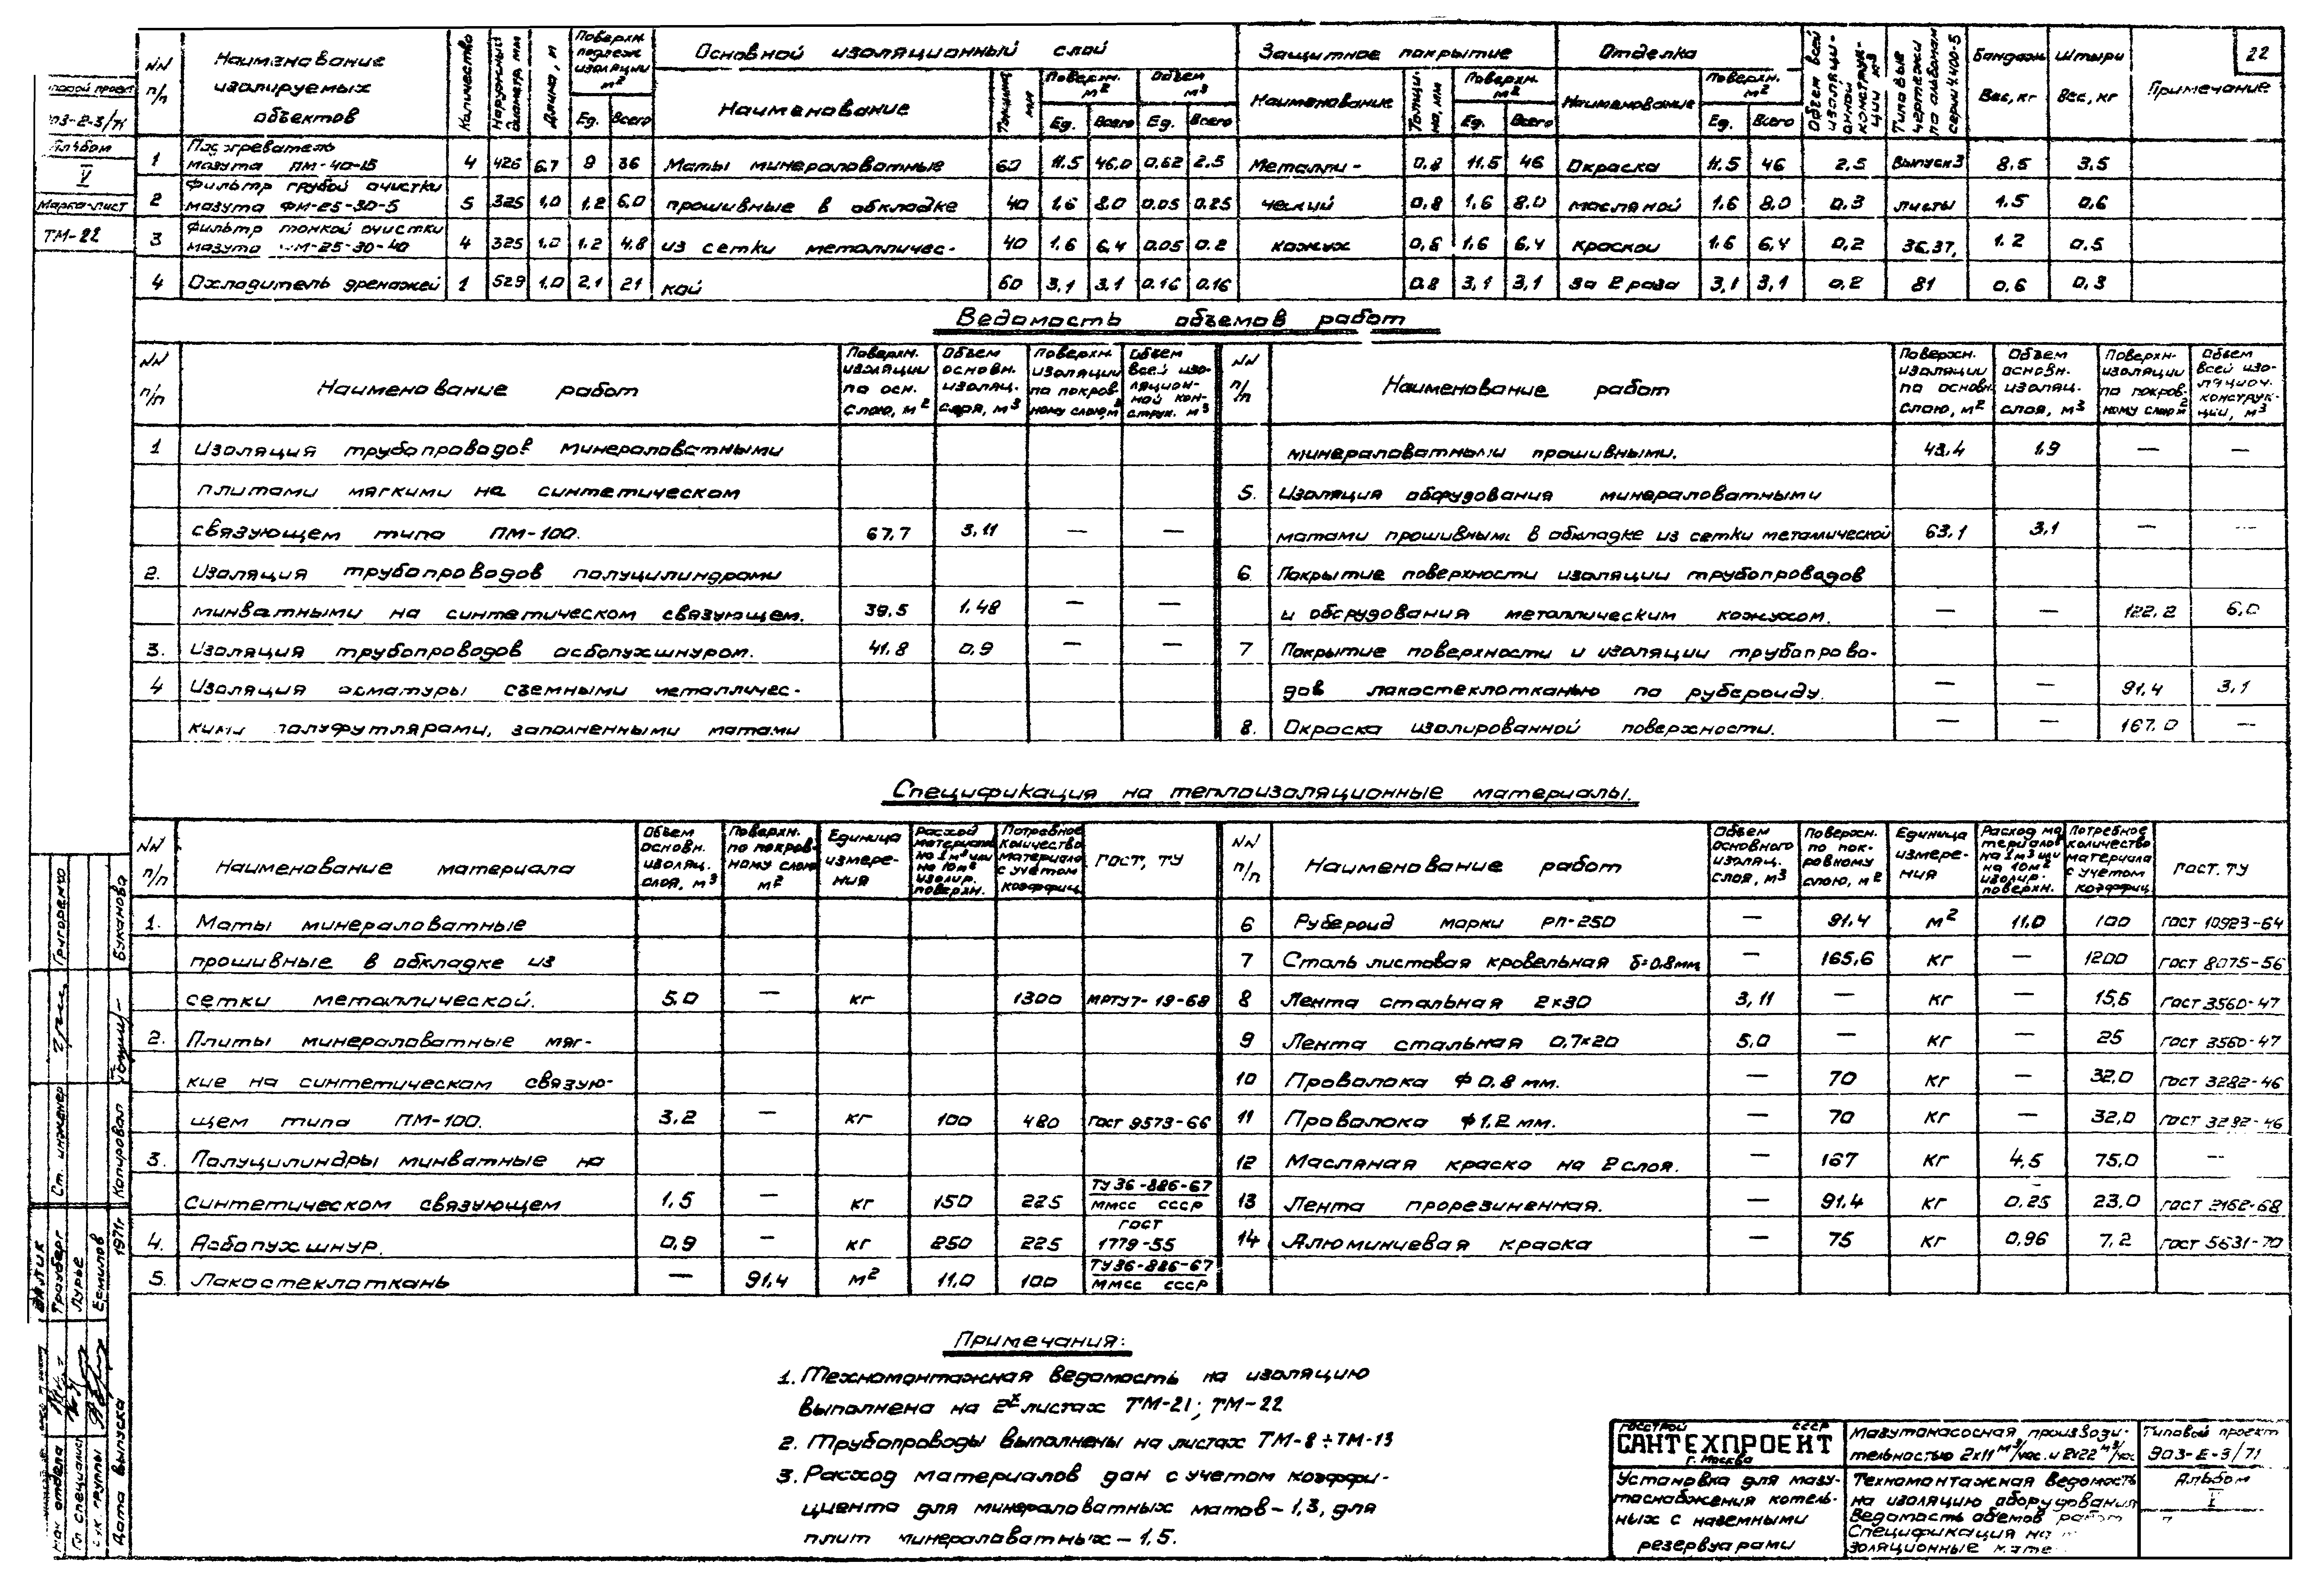 22
NN п/п | Наименование изолируемых объектов | Количество | Наружный диаметр, мм | Длина, м | Поверхн. подлеж изоляции м² Ед. Всего | Основной изоляционный слой: Наименование | Толщина мм | Поверхн. м² Ед. Всего | Объем м³ Ед. Всего | Защитное покрытие: Наименование | Толщина, мм | Поверхн. м² Ед. Всего | Отделка: Наименование | Поверхн. м² Ед. Всего | Объем всей изоляционной конструкции м³ | Типовые чертежи по альбомам серии | Бандаж Вес, кг | Штыри Вес, кг | Примечание
1 | Подогреватель мазута ПМ-40-15 | 4 | 426 | 6.7 | 9 | 36 | Маты минераловатные | 60 | 11.5 | 46.0 | 0.62 | 2.5 | Металли- | 0.8 | 11.5 | 46 | Окраска | 11.5 | 46 | 2.5 | Выпуск 3 | 8.5 | 3.5
2 | Фильтр грубой очистки мазута ФМ-25-30-5 | 5 | 325 | 1,0 | 1.2 | 6.0 | прошивные в обкладке | 40 | 1.6 | 8.0 | 0.05 | 0.25 | ческий | 0,8 | 1.6 | 8.0 | масляной | 1.6 | 8.0 | 0.3 | листы | 1.5 | 0,6
3 | Фильтр тонкой очистки мазута М-25-30-40 | 4 | 325 | 1.0 | 1.2 | 4.8 | из сетки металличес- | 40 | 1.6 | 6,4 | 0.05 | 0.2 | кожух | 0,8 | 1.6 | 6,4 | краской | 1.6 | 6,4 | 0,2 | 36.37, | 1.2 | 0.5
4 | Охладитель дренажей | 1 | 529 | 1,0 | 2,1 | 21 | кой | 60 | 3,1 | 3.1 | 0.16 | 0.16 | 0.8 | 3,1 | 3,1 | за 2 раза | 3,1 | 3,1 | 0,2 | 81 | 0.6 | 0,3
Ведомость объемов работ
NN п/п | Наименование работ | Поверхн. изоляции по осн. слою, м² | Объем основн. изоляц. слоя, м³ | Поверхн. изоляции по покровному слою, м² | Объем всей изоляционной конструк. м³
1 Изоляция трубопроводов минераловатными
плитами мягкими на синтетическом
связующем типа ПМ-100. | 67,7 | 3,11 | — | —
2. Изоляция трубопроводов полуцилиндрами
минватными на синтетическом связующем. | 39,5 | 1,48 | — | —
3. Изоляция трубопроводов асбопухшнуром. | 41,8 | 0,9 | — | —
4 Изоляция арматуры съемными металличес-
кими полуфутлярами, заполненными матами
NN п/п | Наименование работ | Поверхн. изоляции по основн. слою, м² | Объем основн. изоляц. слоя, м³ | Поверхн. изоляции по покровному слою м² | Объем всей изоляцион. конструкции, м³
минераловатными прошивными. | 43,4 | 1,9 | — | —
5. Изоляция оборудования минераловатными
матами прошивными в обкладке из сетки металлической | 63,1 | 3,1 | — | —
6 Покрытие поверхности изоляции трубопроводов
и оборудования металлическим кожухом. | — | — | 122,2 | 6,0
7 Покрытие поверхности и изоляции трубопрово-
дов лакостеклотканью по рубероиду. | — | — | 91,4 | 3,1
8. Окраска изолированной поверхности. | — | — | 167,0 | —
Спецификация на теплоизоляционные материалы.
NN п/п | Наименование материала | Объем основн. изоляц. слоя, м³ | Поверхн. по покровному слою м² | Единица измерения | Расход материала на 1м³ или на 10м² изолир. поверхн. | Потребное количество материала с учетом коэффиц | ГОСТ, ТУ
1. Маты минераловатные
прошивные в обкладке из
сетки металлической. | 5,0 | — | кг | 1300 | МРТУ7-19-68
2. Плиты минераловатные мяг-
кие на синтетическом связую-
щем типа ПМ-100. | 3,2 | — | кг | 100 | 480 | ГОСТ 9573-66
3. Полуцилиндры минватные на
синтетическом связующем | 1,5 | — | кг | 150 | 225 | ТУ 36-886-67 ММСС СССР
4. Асбопухшнур. | 0,9 | — | кг | 250 | 225 | ГОСТ 1779-55
5. Лакостеклоткань | — | 91,4 | м² | 11,0 | 100 | ТУ36-886-67 ММСС СССР
NN п/п | Наименование работ | Объем основного изоляц. слоя, м³ | Поверхн. по покровному слою, м² | Единица измерения | Расход материалов на 1м³ или на 10м² изолир. поверхн. | Потребное количество материала с учетом коэффиц | ГОСТ. ТУ
6 Рубероид марки РП-250 | — | 91,4 | м² | 11,0 | 100 | ГОСТ 10923-64
7 Сталь листовая кровельная δ=0.8мм | — | 165,6 | кг | — | 1200 | ГОСТ 8075-56
8 Лента стальная 2×30 | 3,11 | — | кг | — | 15,6 | ГОСТ 3560-47
9 Лента стальная 0,7×20 | 5,0 | — | кг | — | 25 | ГОСТ 3560-47
10 Проволока ф 0,8 мм. | — | 70 | кг | — | 32,0 | ГОСТ 3282-46
11 Проволока ф 1,2 мм. | — | 70 | кг | — | 32,0 | ГОСТ 3282-46
12 Масляная краска на 2 слоя. | — | 167 | кг | 4,5 | 75,0 | —
13 Лента прорезиненная. | — | 91.4 | кг | 0,25 | 23.0 | ГОСТ 2162-68
14 Алюминиевая краска | — | 75 | кг | 0,96 | 7,2 | ГОСТ 5631-70
Примечания:
1. Техномонтажная ведомость на изоляцию
выполнена на 2х листах ТМ-21; ТМ-22
2. Трубопроводы выполнены на листах ТМ-8÷ТМ-13
3. Расход материалов дан с учетом коэффи-
циента для минераловатных матов-1,3, для
плит минераловатных-1,5.
Госстрой СССР
САНТЕХПРОЕКТ
г. Москва
Установка для мазу-
тоснабжения котель-
ных с наземными
резервуарами
Мазутонасосная производи-
тельностью 2х11 м³/час. и 2х22 м³/час
Техномонтажная ведомость
на изоляцию оборудования
Ведомость объемов работ
Спецификация на
золяционные мате
Типовой проект
903-2-3/71
Альбом
V
Альбом
V
Марка-лист
ТМ-22
Григоренко
Буканова
Ст. инженер
Копировал
Трауберг
Лурье
1971г
Нач отдела
Гл специалист
Рук группы
Дата выпуска